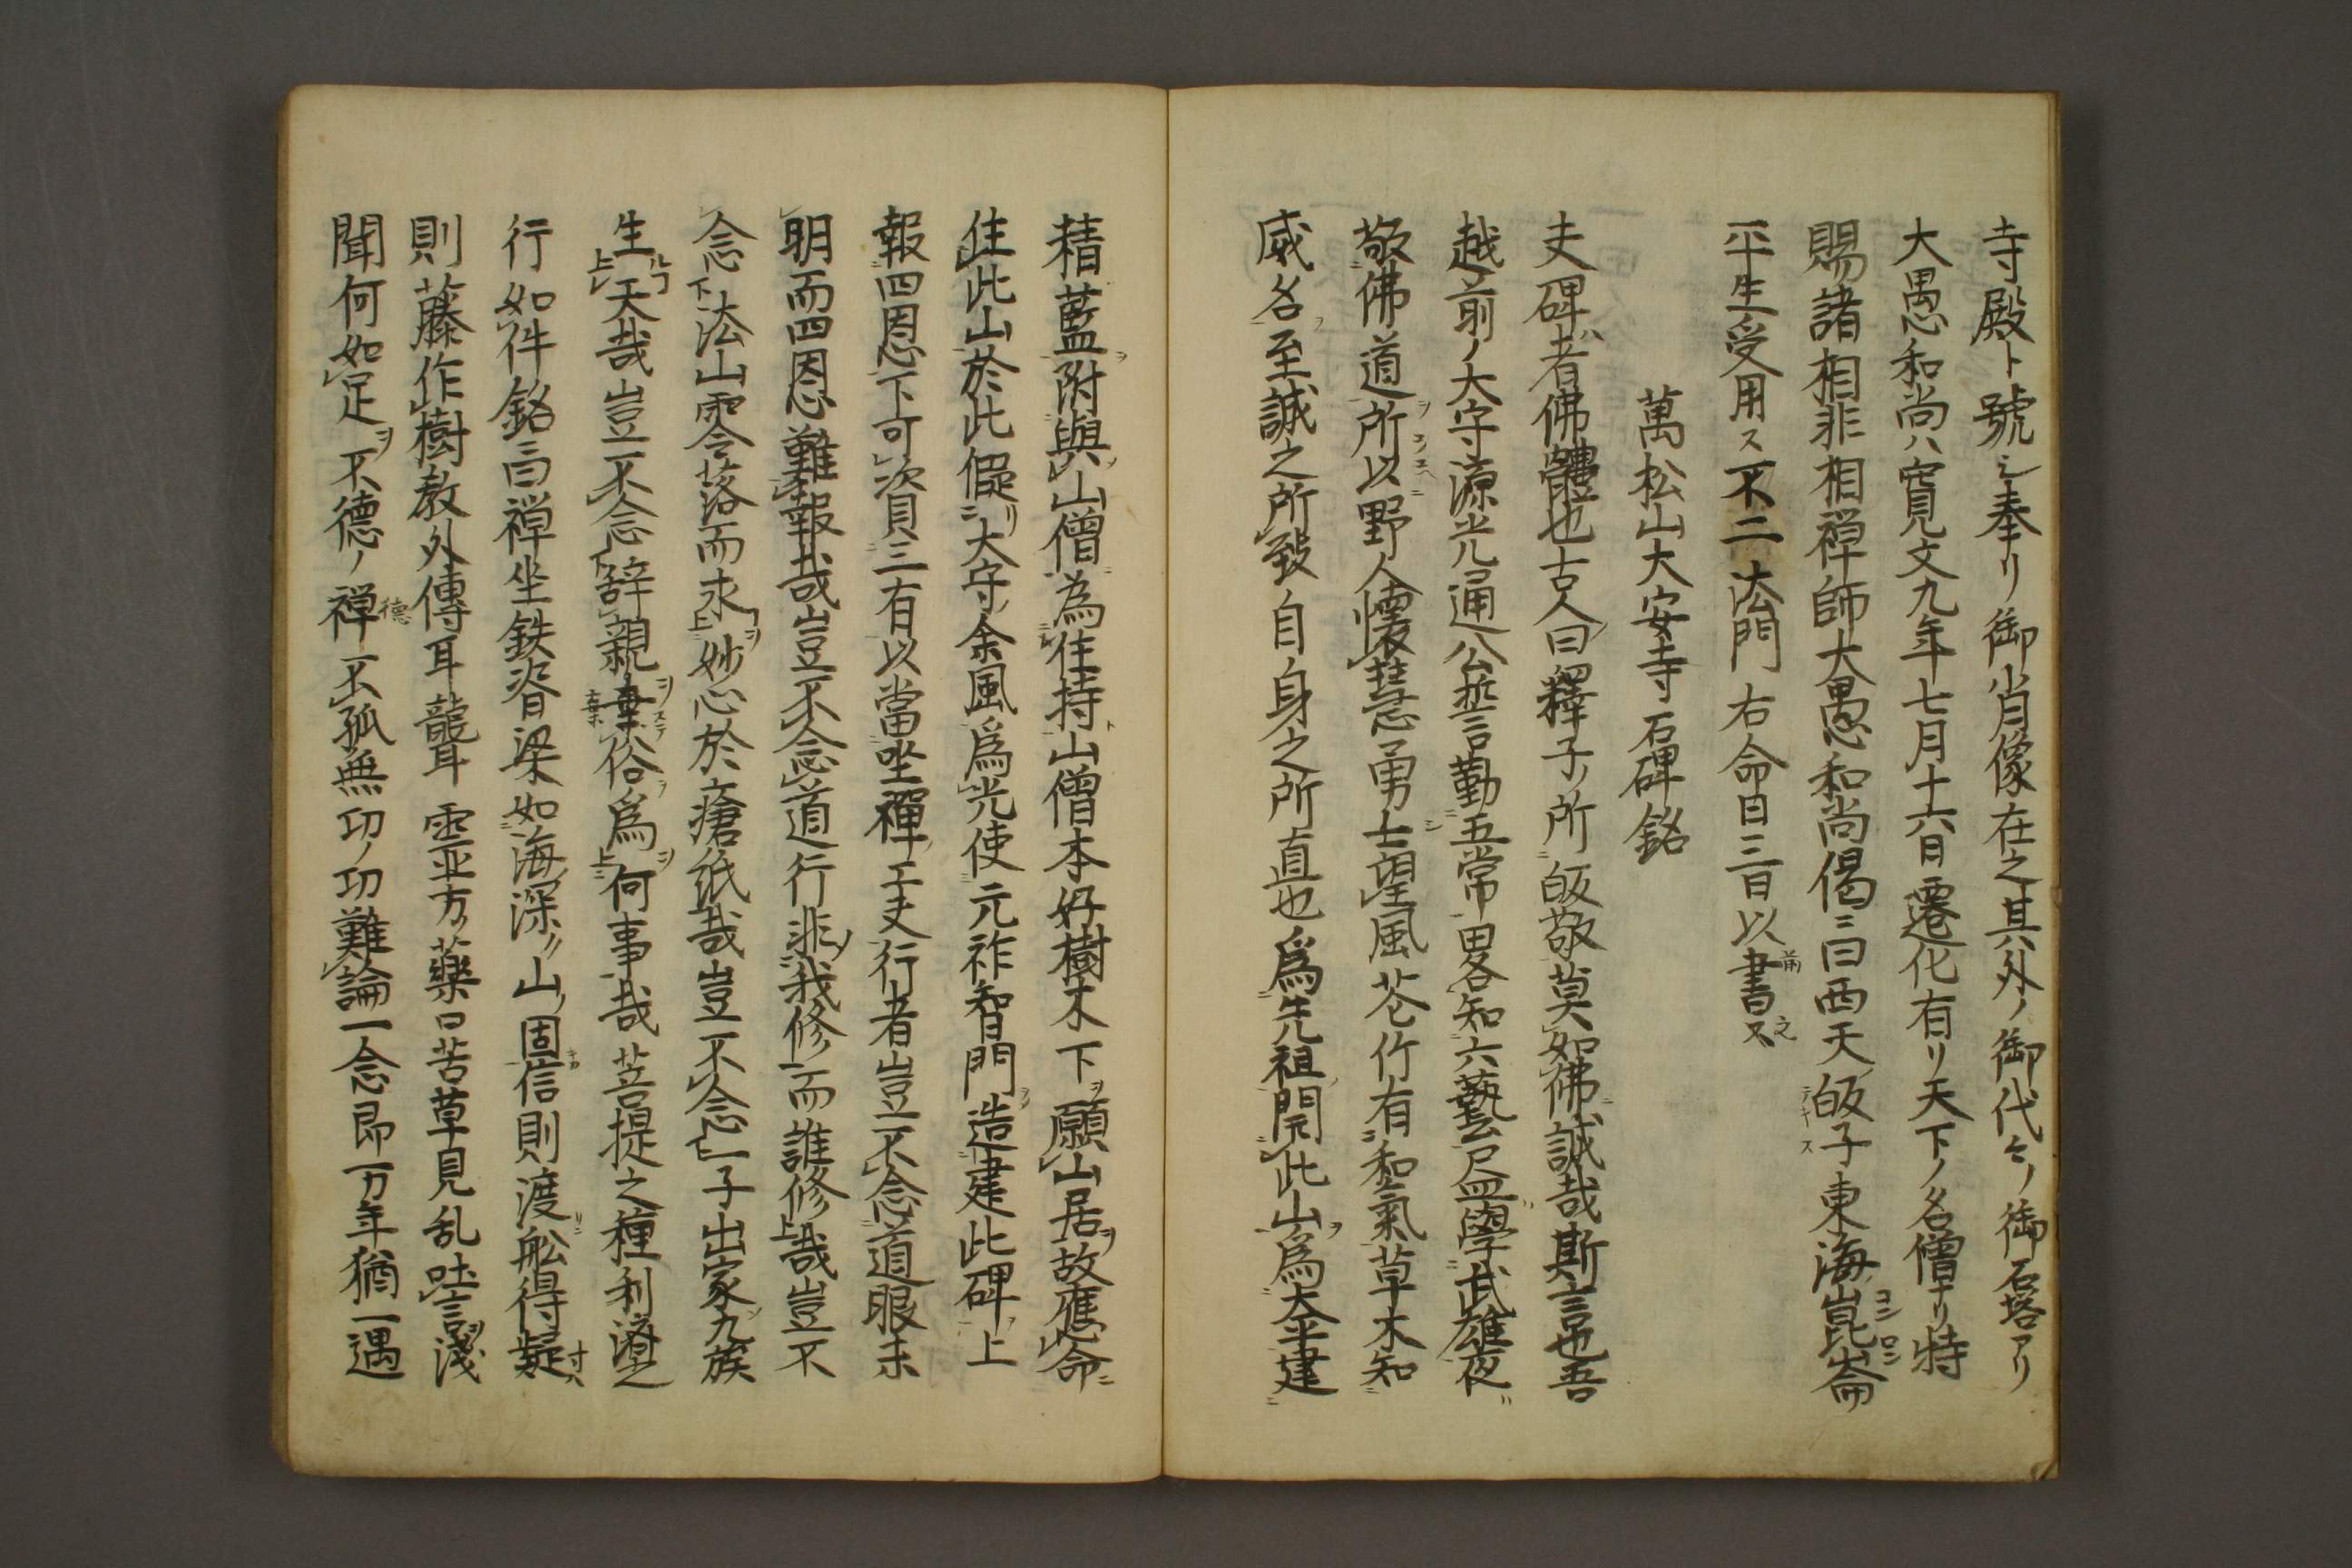 寺殿ト號シ奉リ御肖像在之其外ノ御代々ノ御石塔アリ
大愚和尚ハ寛文九年七月十六日遷化有リ天下ノ名僧ナリ特
賜諸相非相禅師大愚和尚偈ニ曰西天皈子東海崑崙
平生受用ス不二法門右命日三日以前書之
萬松山大安寺石碑銘
夫碑者佛體也古人曰釋子ノ所皈敬莫如佛誠哉斯言也吾
越前ノ大守源光通公哲言勤五常畧知六藝昼學武雄夜
敬佛道所以野人懐慧勇士望風花竹有和氣草木知
威名至誠之所致自身之所直也為先祖開此山為太平建
精藍附與山僧為住持山僧本好樹木下願山居故應命
住此山於此偓大守余風為光使元祚智門造建此碑上
報四恩下可資三有以當坐禪工夫行者豈不念道眼未
明而四恩難報哉豈不念道行非我修而誰修哉豈不
念法山零落而求妙心於瘡紙哉豈不念一子出家九族
生天哉豈不念辞親棄俗為何事哉菩提之種利濟之
行如件銘曰禅坐鉄脊梁如海深山固信則渡舩得疑
則藤作樹教外傳耳聾霊亚方藥口苦草見乱吐言淺
聞何如足不德ノ德不孤無功ノ功難論一念即万年猶一遇